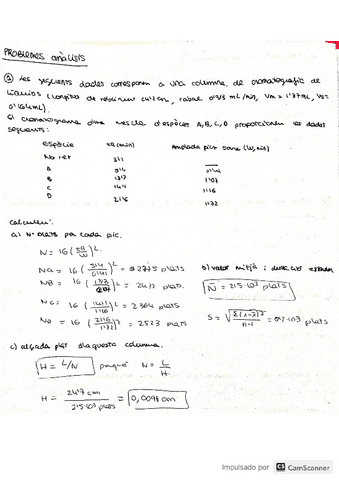 PROBLEMES anàlisis
① Les següents dades corresponen a una columna de cromatografia de
líquids (longitud de rebliment 24'7cm, cabal 0'313 mL/min, VM = 1'37mL, Vs=
0'164mL).
El cromatograma d'una mescla d'espècies A, B, C, D proporciona les dades
següents:
espècie tR (min) Amplada pics base (W, min)
No ret 3'1
A 5'4 0'41
B 13'3 1'07
C 14'1 1'16
D 21'6 1'72
Calculeu:
a) Nº plats per cada pic.
N = 16 (tR/W)².
NA = 16 (5'4/0'41)² = 2775 plats
NB = 16 (13'3/1'07)² = 2472 plats.
NC = 16 (14'1/1'16)² = 2364 plats
ND = 16 (21'6/1'72)² = 2523 plats
b) valor mitjà i desviació estàndard
N̄ = 2'5·10³ plats
S = √Σ(x-x̄)²/n-1 = 0'2·10³ plats
c) alçada plat d'aquesta columna.
H = L/N perquè N = L/H
H = 24'7 cm / 2'5·10³ plats = 0,0098 cm
Impulsado por CS CamScanner